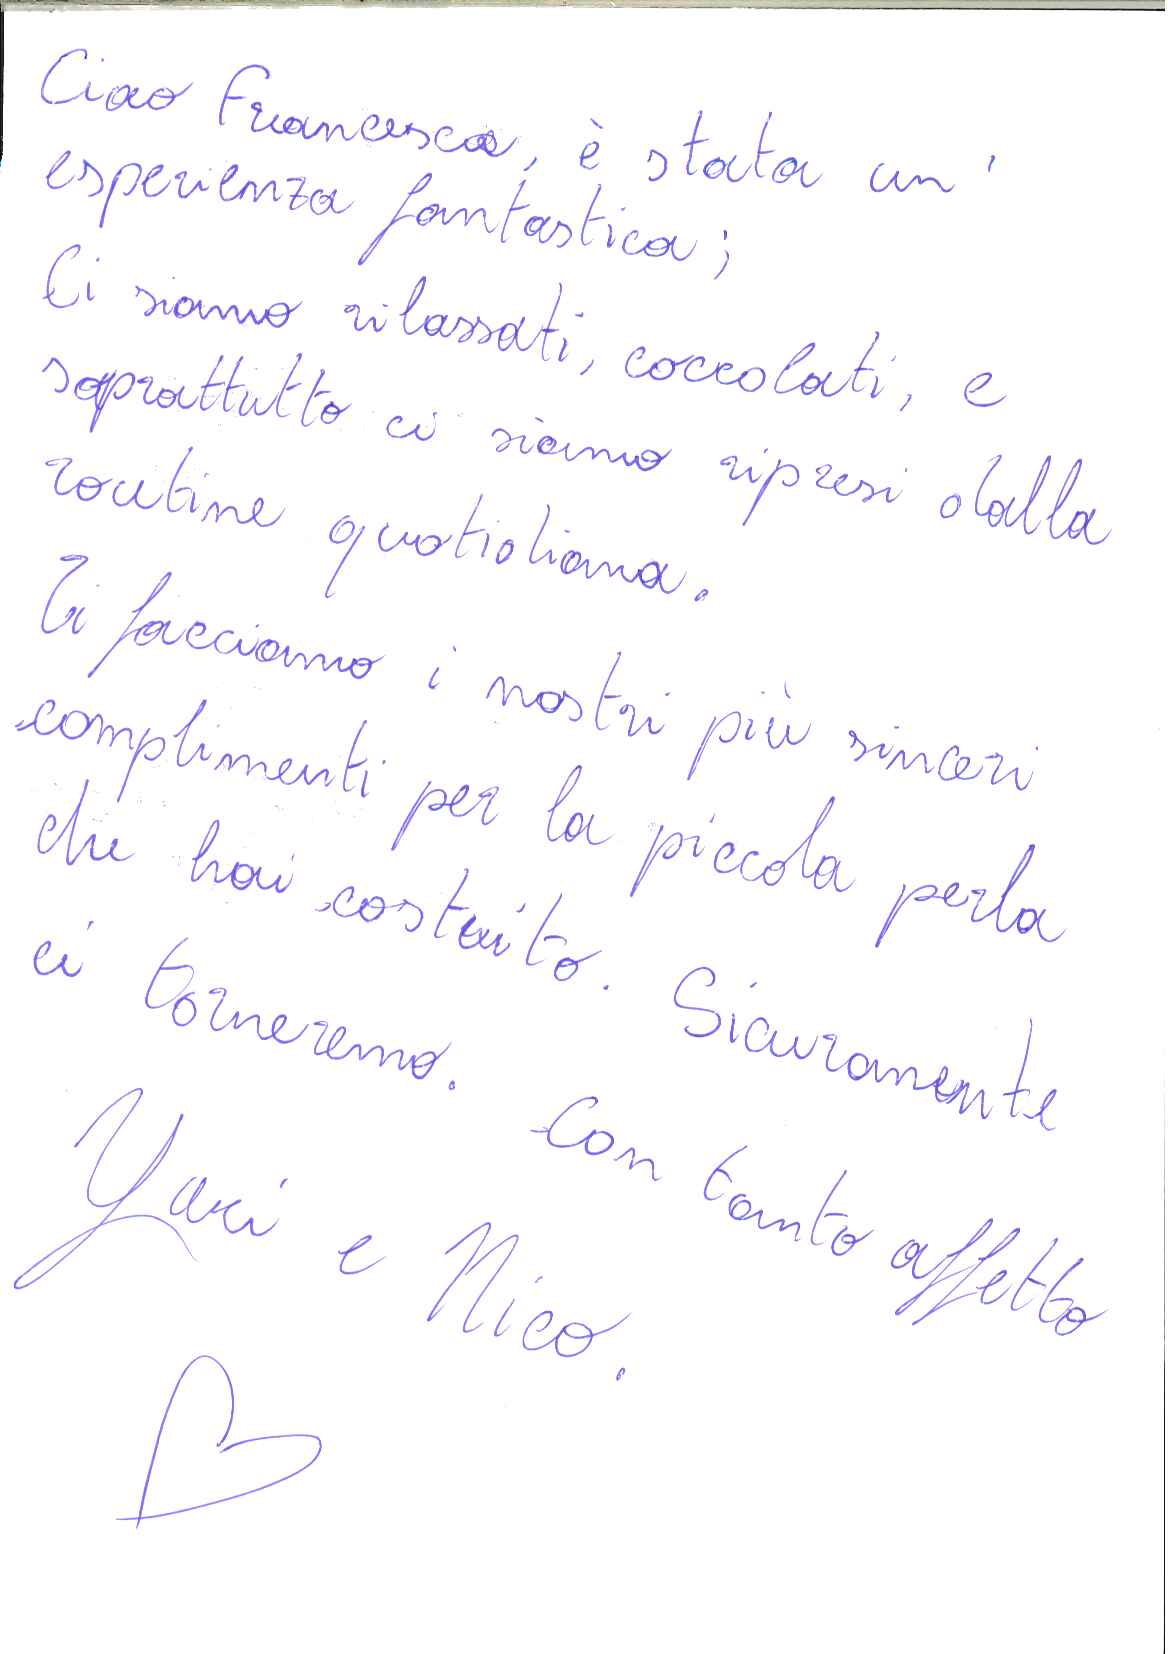 Ciao Francesca, è stata un'
esperienza fantastica;
Ci siamo rilassati, coccolati, e
soprattutto ci siamo ripresi dalla
routine quotidiana.
Ti facciamo i nostri più sinceri
complimenti per la piccola perla
che hai costruito. Sicuramente
ci torneremo. Con tanto affetto
Yuri e Nico.